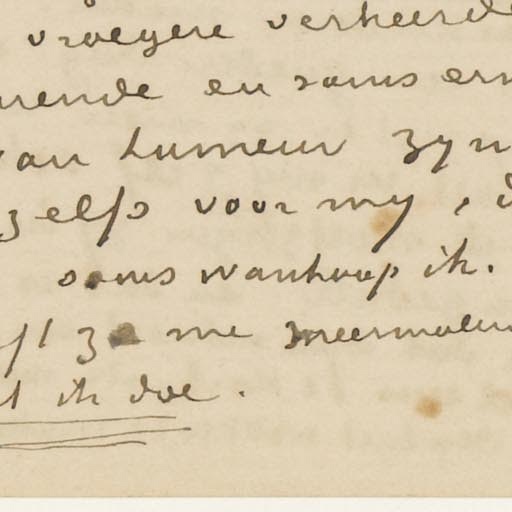 vroegere verkeerde
en soms
van humeur zyn
zelfs voor my, d
soms wanhoop ik.
ze me meermalen
t ik doe.